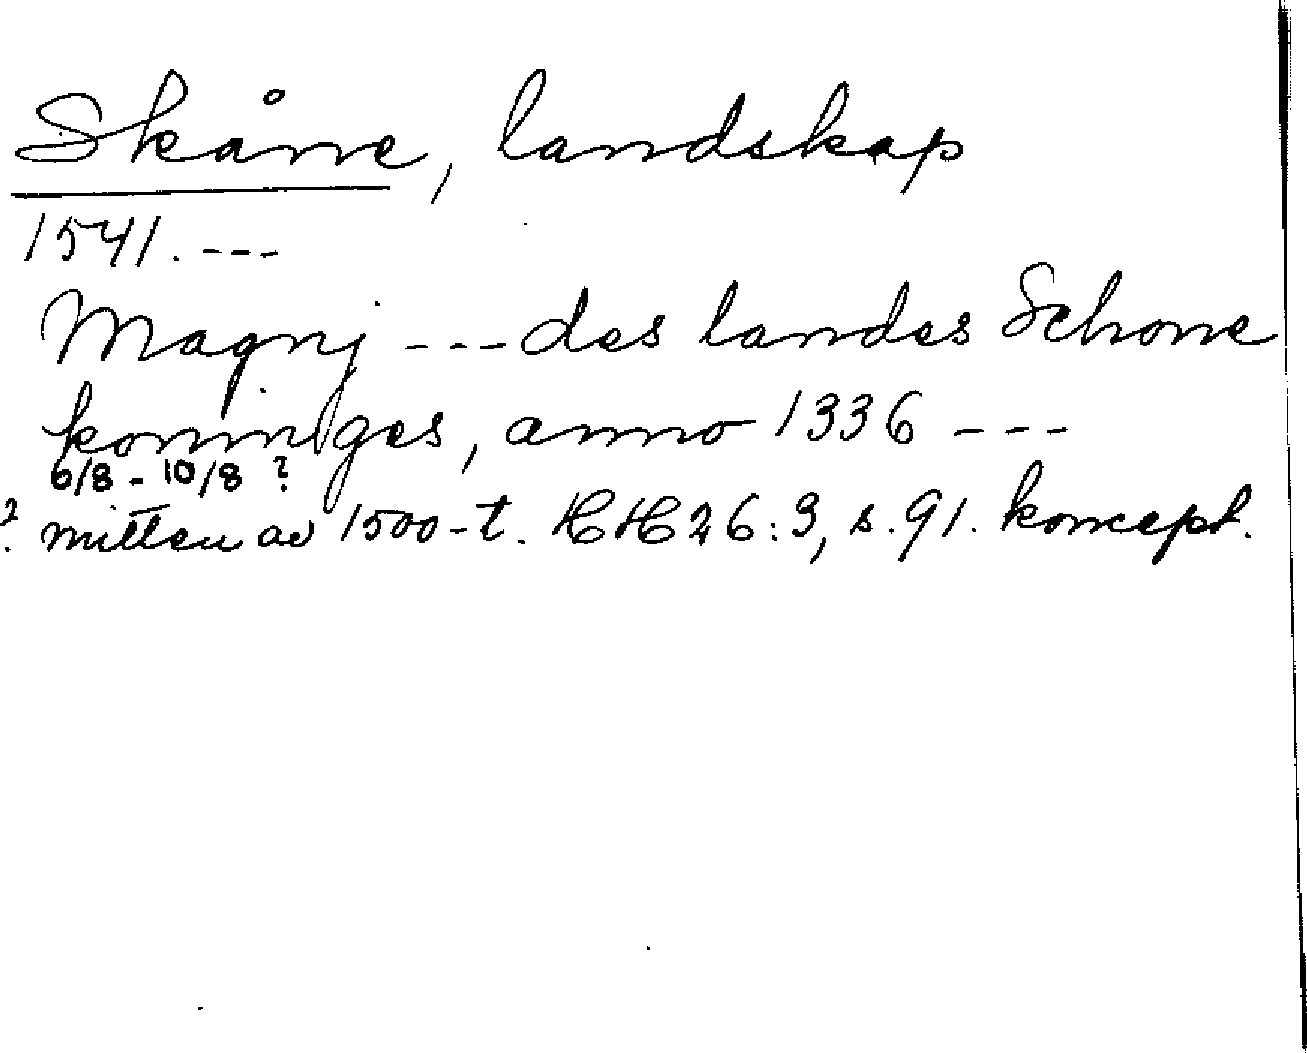 Skåne, landskap
1541. ---
Magnj --- des landes Schone
konniges, anno 1336 ---
6/8 - 10/8 ?
? mitten av 1500-t. HH 26:3, s. 91. koncept.